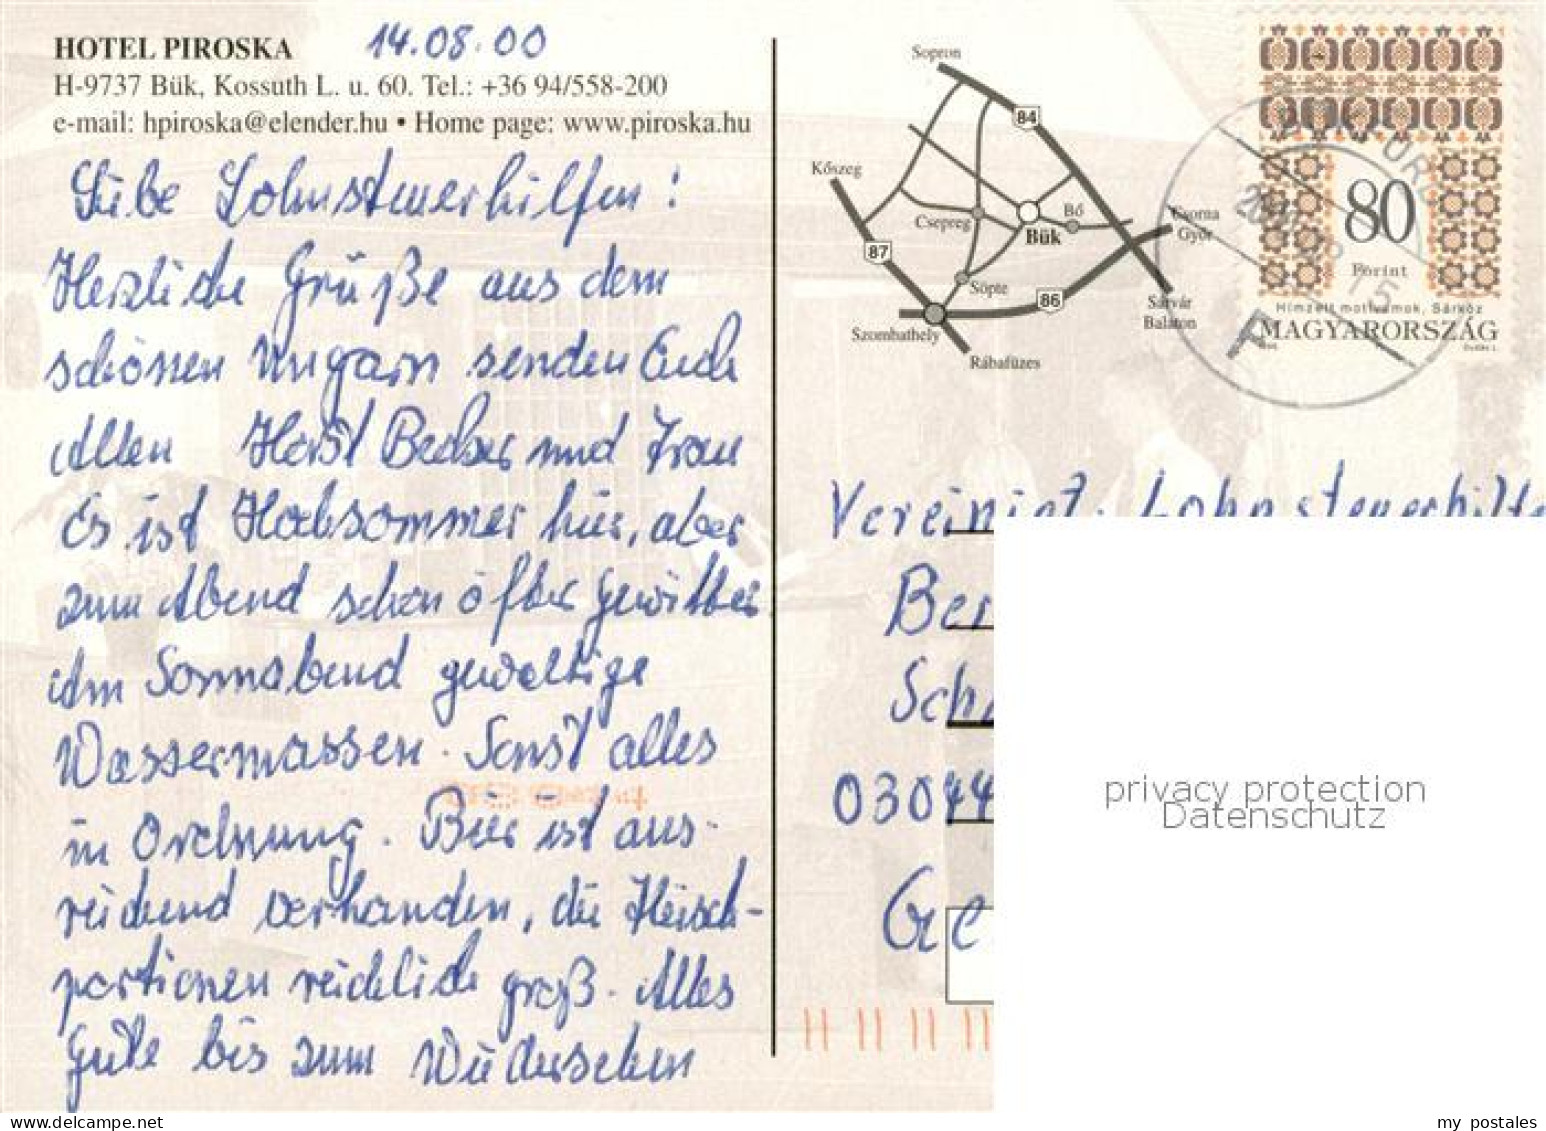 HOTEL PIROSKA 14.08.00
H-9737 Bük, Kossuth L. u. 60. Tel.: +36 94/558-200
e-mail: hpiroska@elender.hu • Home page: www.piroska.hu
Liebe Lohnsteuerhilfen!
Herzliche Grüße aus dem
schönen Ungarn senden Euch
Allen Horst Becker und Frau
Es ist Hochsommer hier, aber
zum Abend schon öfter Gewitter
Am Sonnabend gewaltige
Wassermassen. Sonst alles
in Ordnung. Bier ist aus-
reichend vorhanden, die Fleisch-
portionen reichlich groß. Alles
Gute bis zum Wiedersehen
Sopron
84
Kőszeg
Csepreg
Bő
Bük
Csorna
Győr
87
Söpte
86
Sárvár
Balaton
Szombathely
Rábafüzes
80
Forint
Hímzett motívumok, Sárköz
MAGYARORSZÁG
Vereinigt. Lohnsteuerhilfe
Ber
Sch
03044
Ge
privacy protection
Datenschutz
my postales